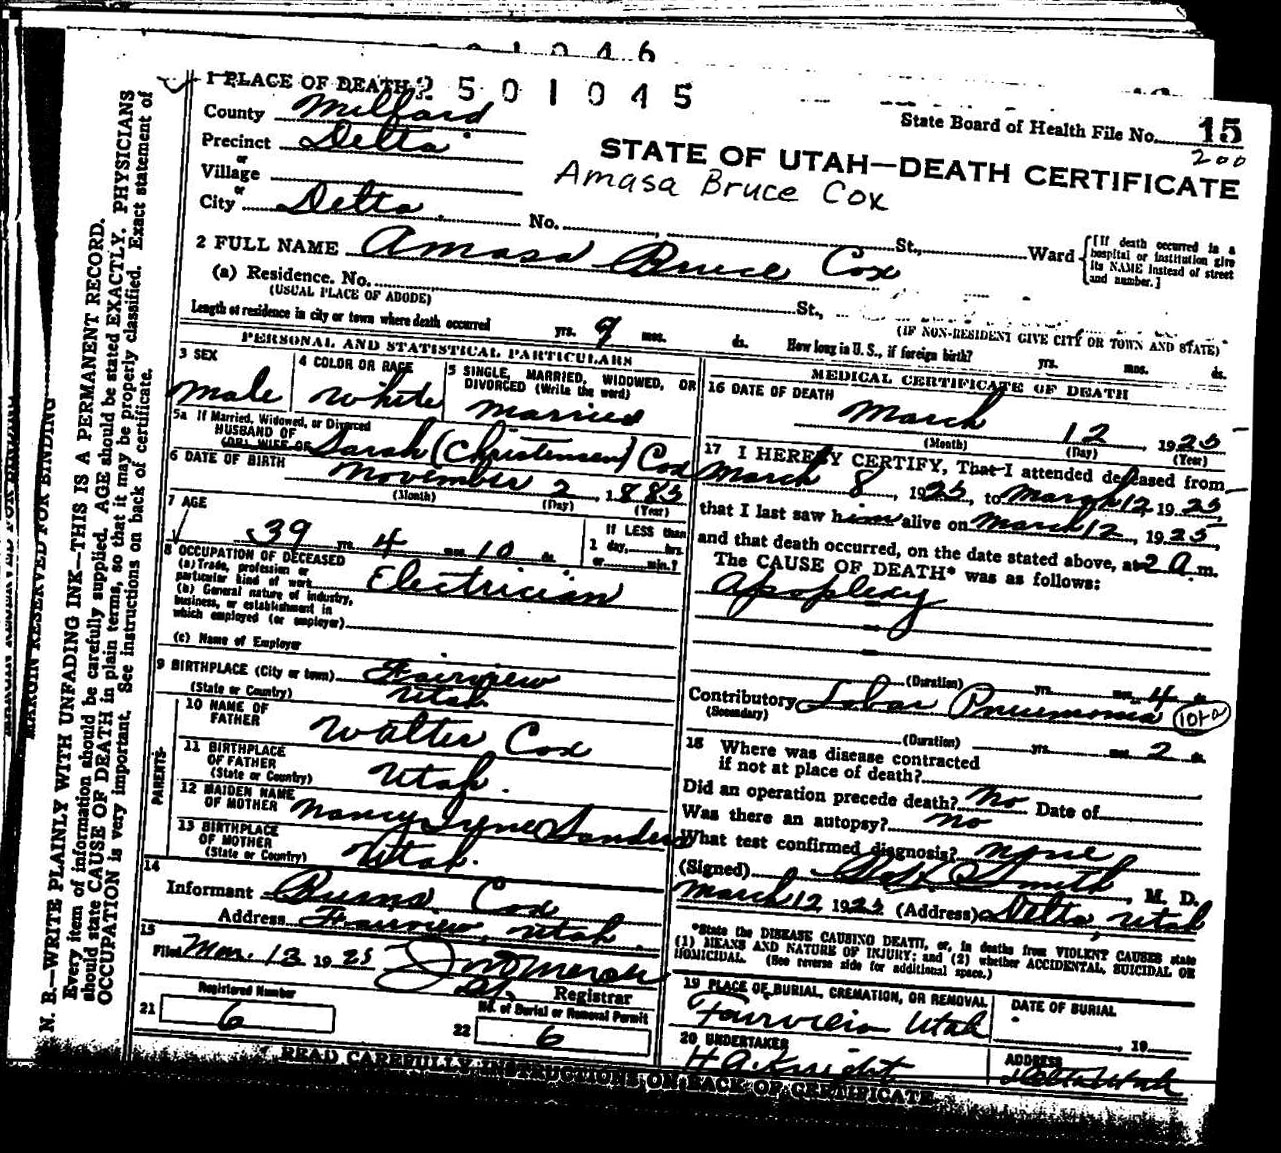 1 0 4 6
1 PLACE OF DEATH 2501045
State Board of Health File No. 15
200
County Milford
Precinct Delta
or
Village
or
City Delta No. St., Ward
STATE OF UTAH—DEATH CERTIFICATE
Amasa Bruce Cox
[If death occurred in a
hospital or institution give
its NAME instead of street
and number.]
2 FULL NAME Amasa Bruce Cox
(a) Residence. No. St.,
(USUAL PLACE OF ABODE)
(IF NON-RESIDENT GIVE CITY OR TOWN AND STATE)
Length of residence in city or town where death occurred yrs. 9 mos. ds. How long in U. S., if foreign birth? yrs. mos. ds.
PERSONAL AND STATISTICAL PARTICULARS
3 SEX
male
4 COLOR OR RACE
White
5 SINGLE, MARRIED, WIDOWED, OR
DIVORCED (Write the word)
married
5a If Married, Widowed, or Divorced
HUSBAND OF
(OR) WIFE OF Sarah (Christensen) Cox
6 DATE OF BIRTH
November 2, 1885
(Month) (Day) (Year)
7 AGE
39 yrs. 4 mos. 10 ds.
If LESS than
1 day, hrs.
or min.?
8 OCCUPATION OF DECEASED
(a) Trade, profession or
particular kind of work Electrician
(b) General nature of industry,
business, or establishment in
which employed (or employer)
(c) Name of Employer
9 BIRTHPLACE (City or town) Fairview
(State or Country) Utah
PARENTS
10 NAME OF
FATHER Walter Cox
11 BIRTHPLACE
OF FATHER
(State or Country) Utah.
12 MAIDEN NAME
OF MOTHER Nancy Lyne Sanders
13 BIRTHPLACE
OF MOTHER
(State or Country) Utah.
14
Informant Burns Cox
Address Fairview, Utah.
15
Filed Mar. 13 1925
Registrar
21 Registered Number
6
22 No. of Burial or Removal Permit
6
MEDICAL CERTIFICATE OF DEATH
16 DATE OF DEATH
March 12, 1925
(Month) (Day) (Year)
17 I HEREBY CERTIFY, That I attended deceased from
March 8, 1925, to March 12 1925,
that I last saw him alive on March 12, 1925,
and that death occurred, on the date stated above, at 2 a m.
The CAUSE OF DEATH* was as follows:
Apoplexy
(Duration) yrs. mos. 4 ds.
Contributory Lobar Pneumonia 101-a
(Secondary)
(Duration) yrs. mos. 2 ds.
18 Where was disease contracted
if not at place of death?
Did an operation precede death? No Date of
Was there an autopsy? no
What test confirmed diagnosis? none
(Signed) Smith, M. D.
March 12 1925 (Address) Delta, Utah
*State the DISEASE CAUSING DEATH, or, in deaths from VIOLENT CAUSES state
(1) MEANS AND NATURE OF INJURY; and (2) whether ACCIDENTAL, SUICIDAL OR
HOMICIDAL. (See reverse side for additional space.)
19 PLACE OF BURIAL, CREMATION, OR REMOVAL
Fairview Utah
DATE OF BURIAL
, 19
20 UNDERTAKER
H A Knight
ADDRESS
Delta Utah
READ CAREFULLY INSTRUCTIONS ON BACK OF CERTIFICATE
MARGIN RESERVED FOR BINDING
MARGIN RESERVED FOR BINDING
N. B.—WRITE PLAINLY WITH UNFADING INK—THIS IS A PERMANENT RECORD.
Every item of information should be carefully supplied. AGE should be stated EXACTLY. PHYSICIANS
should state CAUSE OF DEATH in plain terms, so that it may be properly classified. Exact statement of
OCCUPATION is very important. See instructions on back of certificate.